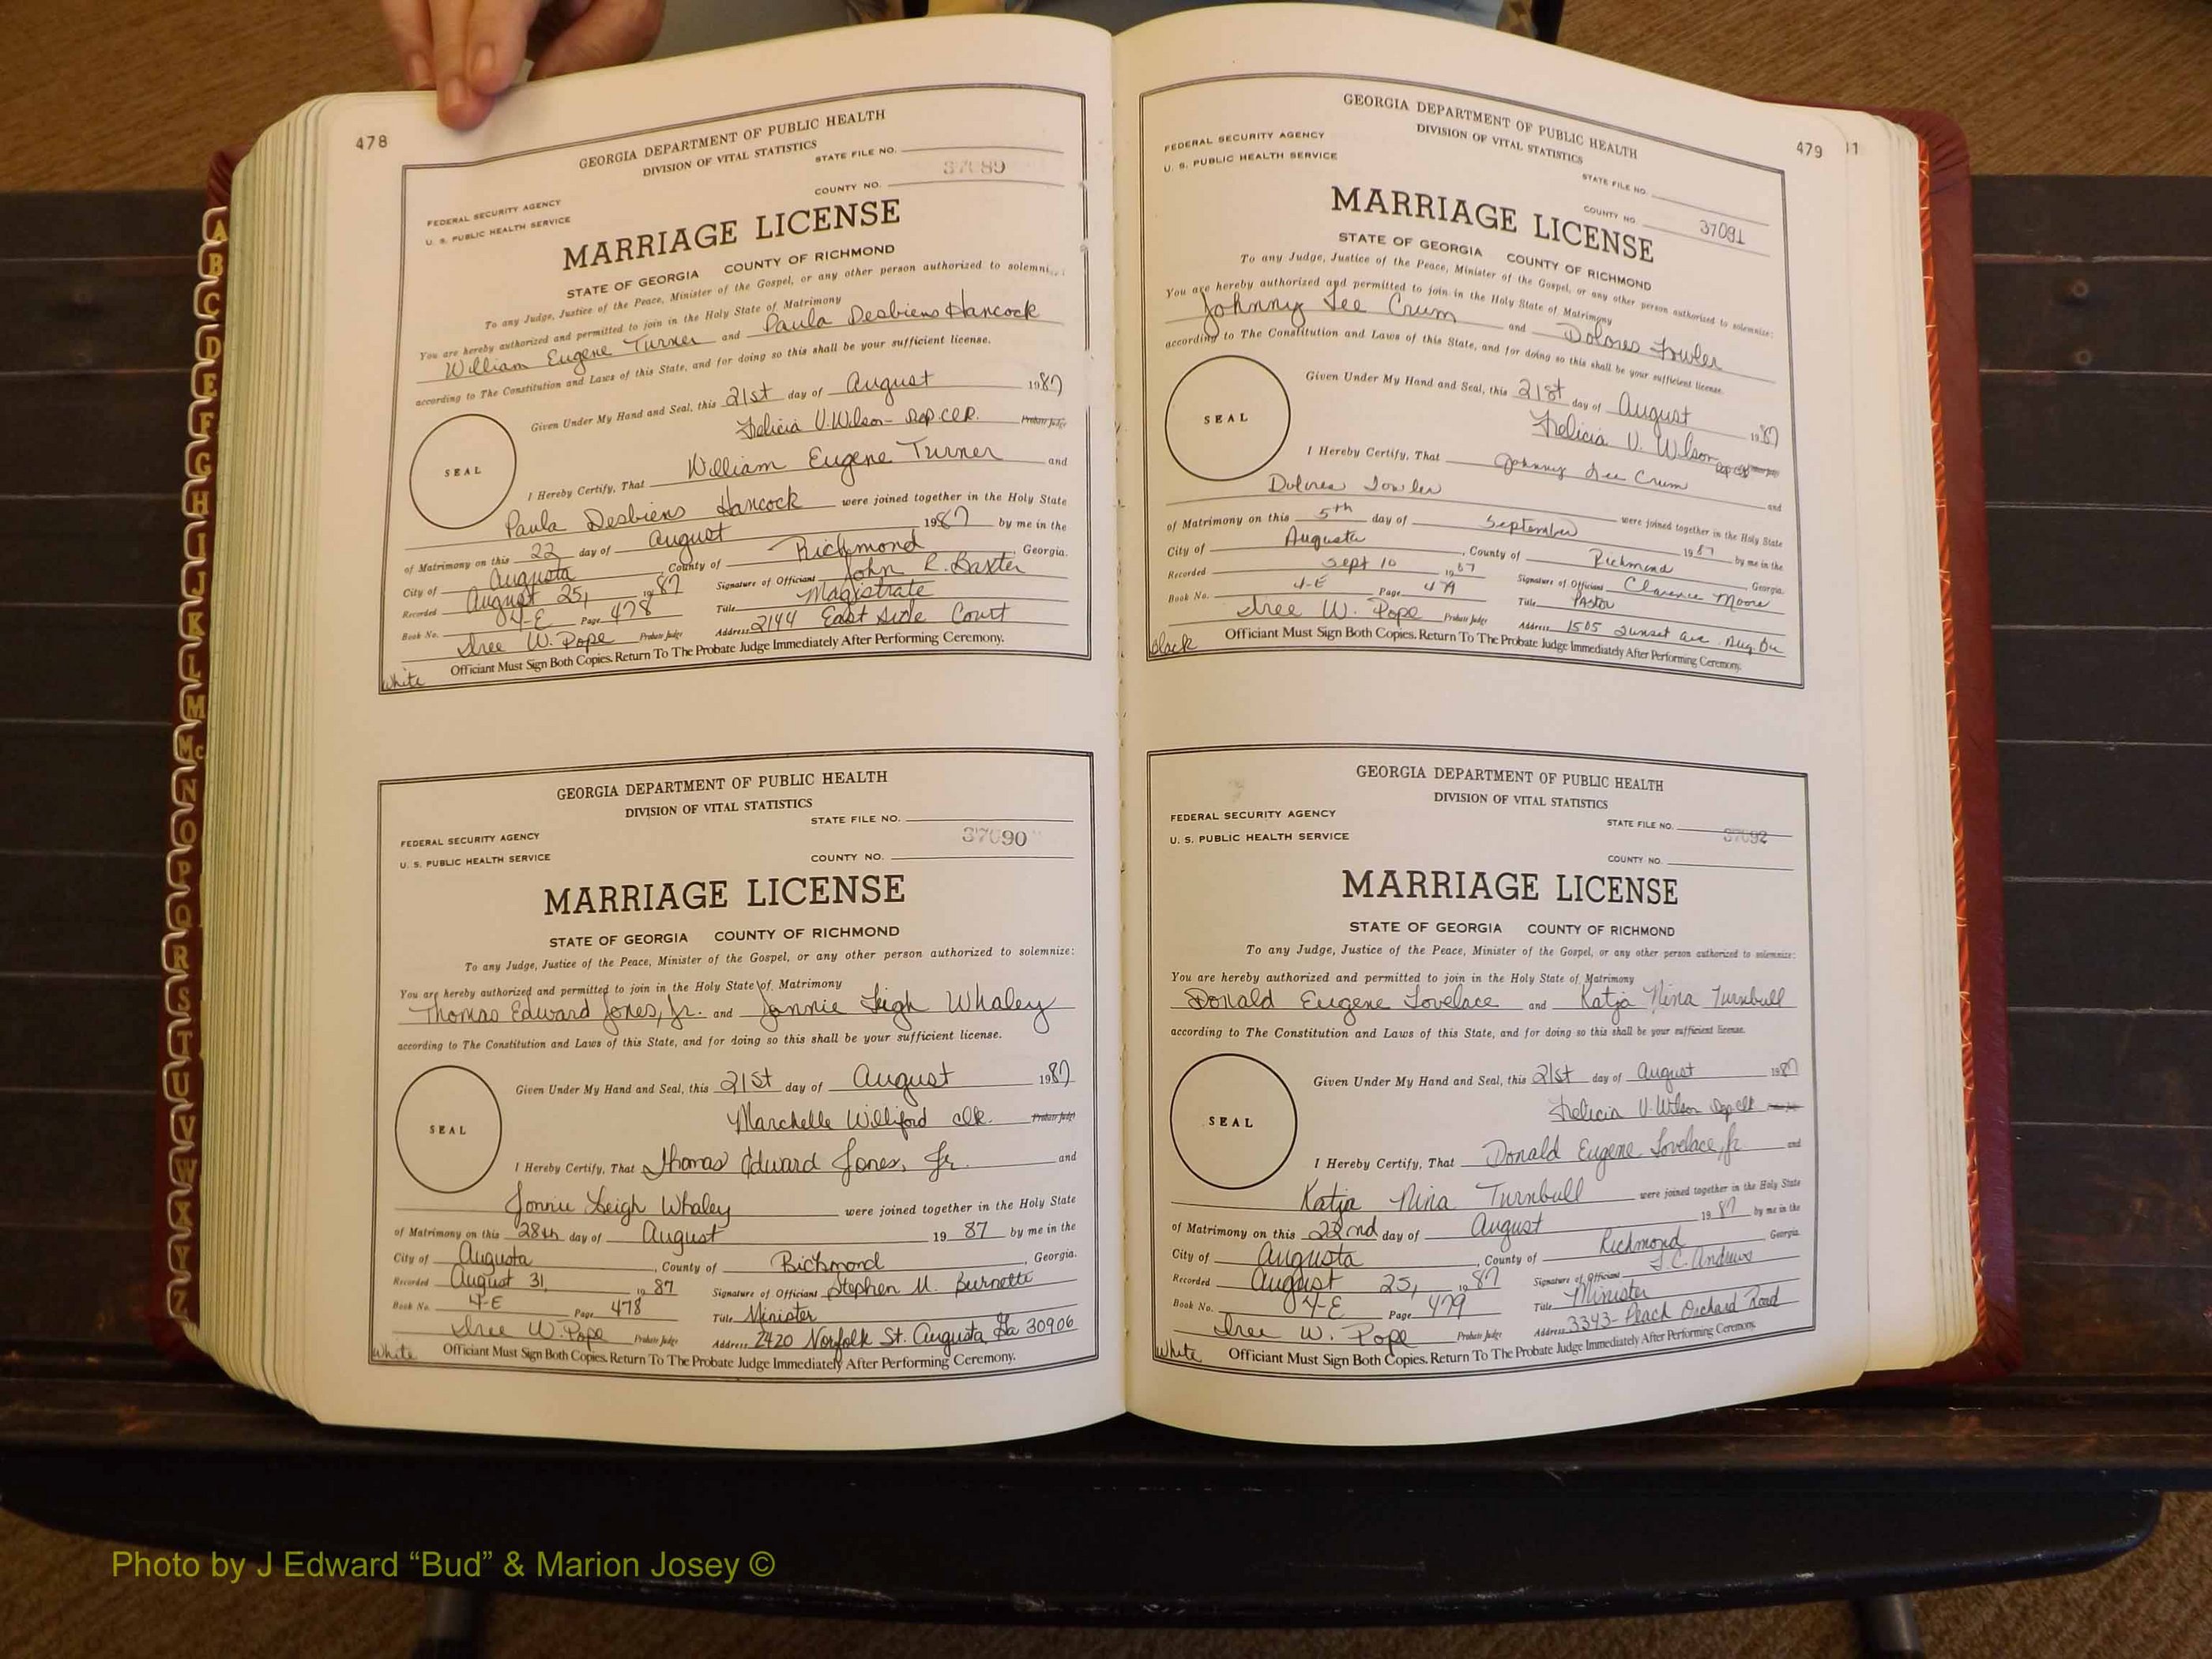 478
GEORGIA DEPARTMENT OF PUBLIC HEALTH
DIVISION OF VITAL STATISTICS
STATE FILE NO.
37089
COUNTY NO.
FEDERAL SECURITY AGENCY
U. S. PUBLIC HEALTH SERVICE
MARRIAGE LICENSE
STATE OF GEORGIA COUNTY OF RICHMOND
To any Judge, Justice of the Peace, Minister of the Gospel, or any other person authorized to
You are hereby authorized and permitted to join in the Holy State of Matrimony
William Eugene Turner and Paula Desbiens Hancock
according to The Constitution and Laws of this State, and for doing so this shall be your sufficient license.
Given Under My Hand and Seal, this 21st day of August 1987
Felicia V. Wilson - Dep. Clk. Probate Judge
SEAL
I Hereby Certify, That William Eugene Turner and
Paula Desbiens Hancock were joined together in the Holy State
of Matrimony on this 22 day of August 1987 by me in the
City of Augusta, County of Richmond, Georgia.
Recorded August 25, 1987 Signature of Officiant John R. Baxter
Book No. 4-E Page 478 Title Magistrate
W. Pope Probate Judge Address 2144 East Side Court
White Officiant Must Sign Both Copies. Return To The Probate Judge Immediately After Performing Ceremony.
GEORGIA DEPARTMENT OF PUBLIC HEALTH
DIVISION OF VITAL STATISTICS
STATE FILE NO.
37090
FEDERAL SECURITY AGENCY
U. S. PUBLIC HEALTH SERVICE
COUNTY NO.
MARRIAGE LICENSE
STATE OF GEORGIA COUNTY OF RICHMOND
To any Judge, Justice of the Peace, Minister of the Gospel, or any other person authorized to solemnize:
You are hereby authorized and permitted to join in the Holy State of Matrimony
Thomas Edward Jones, Jr. and Jonnie Leigh Whaley
according to The Constitution and Laws of this State, and for doing so this shall be your sufficient license.
Given Under My Hand and Seal, this 21st day of August 1987
Marchelle Williford clk. Probate Judge
SEAL
I Hereby Certify, That Thomas Edward Jones, Jr. and
Jonnie Leigh Whaley were joined together in the Holy State
of Matrimony on this 28th day of August 1987 by me in the
City of Augusta, County of Richmond, Georgia.
Recorded August 31, 1987 Signature of Officiant Stephen M. Burnette
Book No. 4-E Page 478 Title Minister
W. Pope Probate Judge Address 2420 Norfolk St. Augusta, Ga 30906
White Officiant Must Sign Both Copies. Return To The Probate Judge Immediately After Performing Ceremony.
479
GEORGIA DEPARTMENT OF PUBLIC HEALTH
DIVISION OF VITAL STATISTICS
FEDERAL SECURITY AGENCY
U. S. PUBLIC HEALTH SERVICE
STATE FILE NO.
COUNTY NO.
37091
MARRIAGE LICENSE
STATE OF GEORGIA COUNTY OF RICHMOND
To any Judge, Justice of the Peace, Minister of the Gospel, or any other person authorized to solemnize:
You are hereby authorized and permitted to join in the Holy State of Matrimony
Johnny Lee Crum and Dolores Fowler
according to The Constitution and Laws of this State, and for doing so this shall be your sufficient license.
Given Under My Hand and Seal, this 21st day of August 1987
Felicia V. Wilson Dep Clk
SEAL
I Hereby Certify, That Johnny Lee Crum and
Dolores Fowler were joined together in the Holy State
of Matrimony on this 5th day of September 1987 by me in the
City of Augusta, County of Richmond, Georgia.
Recorded Sept 10 1987 Signature of Officiant Clarence Moore
Book No. 4-E Page 479 Title Pastor
W. Pope Probate Judge Address 1505 Sunset Ave. Aug.
black Officiant Must Sign Both Copies. Return To The Probate Judge Immediately After Performing Ceremony.
GEORGIA DEPARTMENT OF PUBLIC HEALTH
DIVISION OF VITAL STATISTICS
FEDERAL SECURITY AGENCY
U. S. PUBLIC HEALTH SERVICE
STATE FILE NO. 37092
COUNTY NO.
MARRIAGE LICENSE
STATE OF GEORGIA COUNTY OF RICHMOND
To any Judge, Justice of the Peace, Minister of the Gospel, or any other person authorized to solemnize:
You are hereby authorized and permitted to join in the Holy State of Matrimony
Donald Eugene Lovelace and Katja Nina Turnbull
according to The Constitution and Laws of this State, and for doing so this shall be your sufficient license.
Given Under My Hand and Seal, this 21st day of August 1987
Felicia V. Wilson Dep Clk
SEAL
I Hereby Certify, That Donald Eugene Lovelace, Jr and
Katja Nina Turnbull were joined together in the Holy State
of Matrimony on this 22nd day of August 1987 by me in the
City of Augusta, County of Richmond Georgia.
Recorded August 25, 1987 Signature of Officiant Andrews
Book No. 4-E Page 479 Title Minister
W. Pope Probate Judge Address 3343 - Peach Orchard Road
White Officiant Must Sign Both Copies. Return To The Probate Judge Immediately After Performing Ceremony.
A
B
C
D
E
F
G
H
I
J
K
L
M
Mc
N
O
P
Q
R
S
T
U
V
W
X
Y
Z
Photo by J Edward “Bud” & Marion Josey ©